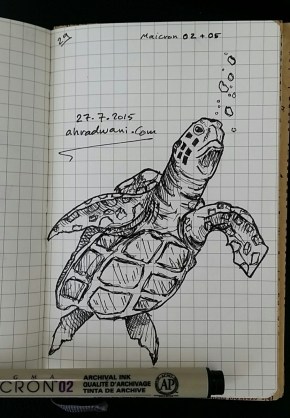 29
Maicron 02 + 05
27.7.2015
ahradwani.com
GMA
CRON 02
ARCHIVAL INK
QUALITÉ D'ARCHIVAGE
TINTA DE ARCHIVO
AP